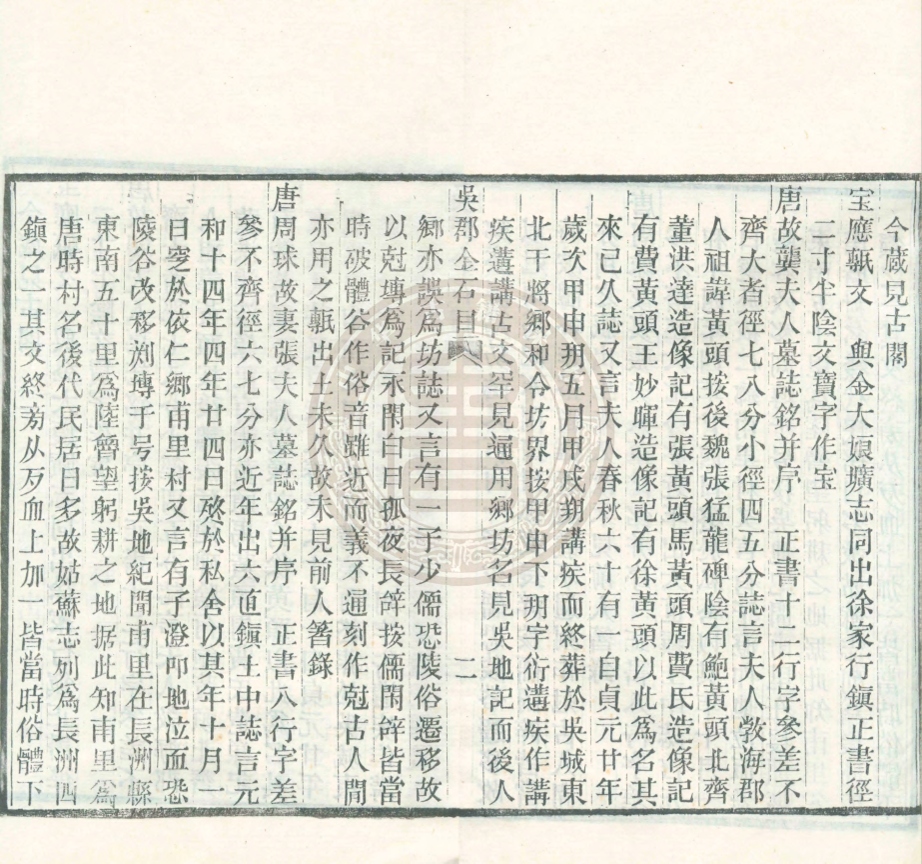 今藏見古閣
宝應甎文　與金大娘壙志同出徐家行鎮正書徑
二寸半陰文寶字作宝
唐故龔夫人墓誌銘并序　正書十二行字參差不
齊大者徑七八分小徑四五分誌言夫人敦海郡
人祖諱黃頭按後魏張猛龍碑陰有鮑黃頭北齊
董洪達造像記有張黃頭馬黃頭周費氏造像記
有費黃頭王妙暉造像記有徐黃頭以此爲名其
來已久誌又言夫人春秋六十有一自貞元廿年
歲次甲申玥五月甲戌朔講疾而終葬於吳城東
北干將鄉和令坊界按甲申下玥字衍遘疾作講
疾遘講古文罕見通用鄉坊名見吳地記而後人
吳郡金石目　二
鄉亦誤爲坊誌又言有一子少儒恐陵俗遷移故
以尅塼爲記永閑白日孤夜長辝按儒閑辝皆當
時破體谷作俗音雖近而義不通刻作尅古人閒
亦用之甎出土未久故未見前人箸錄
唐周球故妻張夫人墓誌銘并序　正書八行字差
參不齊徑六七分亦近年出六直鎮土中誌言元
和十四年四年廿四日歿於私舍以其年十月一
日窆於依仁鄉甫里村又言有子澄叩地泣而恐
陵谷改移刋塼于号按吳地紀聞甫里在長洲縣
東南五十里爲陸魯望躬耕之地据此知甫里爲
唐時村名後代民居日多故姑蘇志列爲長洲四
鎮之一其文終旁从歹血上加一皆當時俗體下